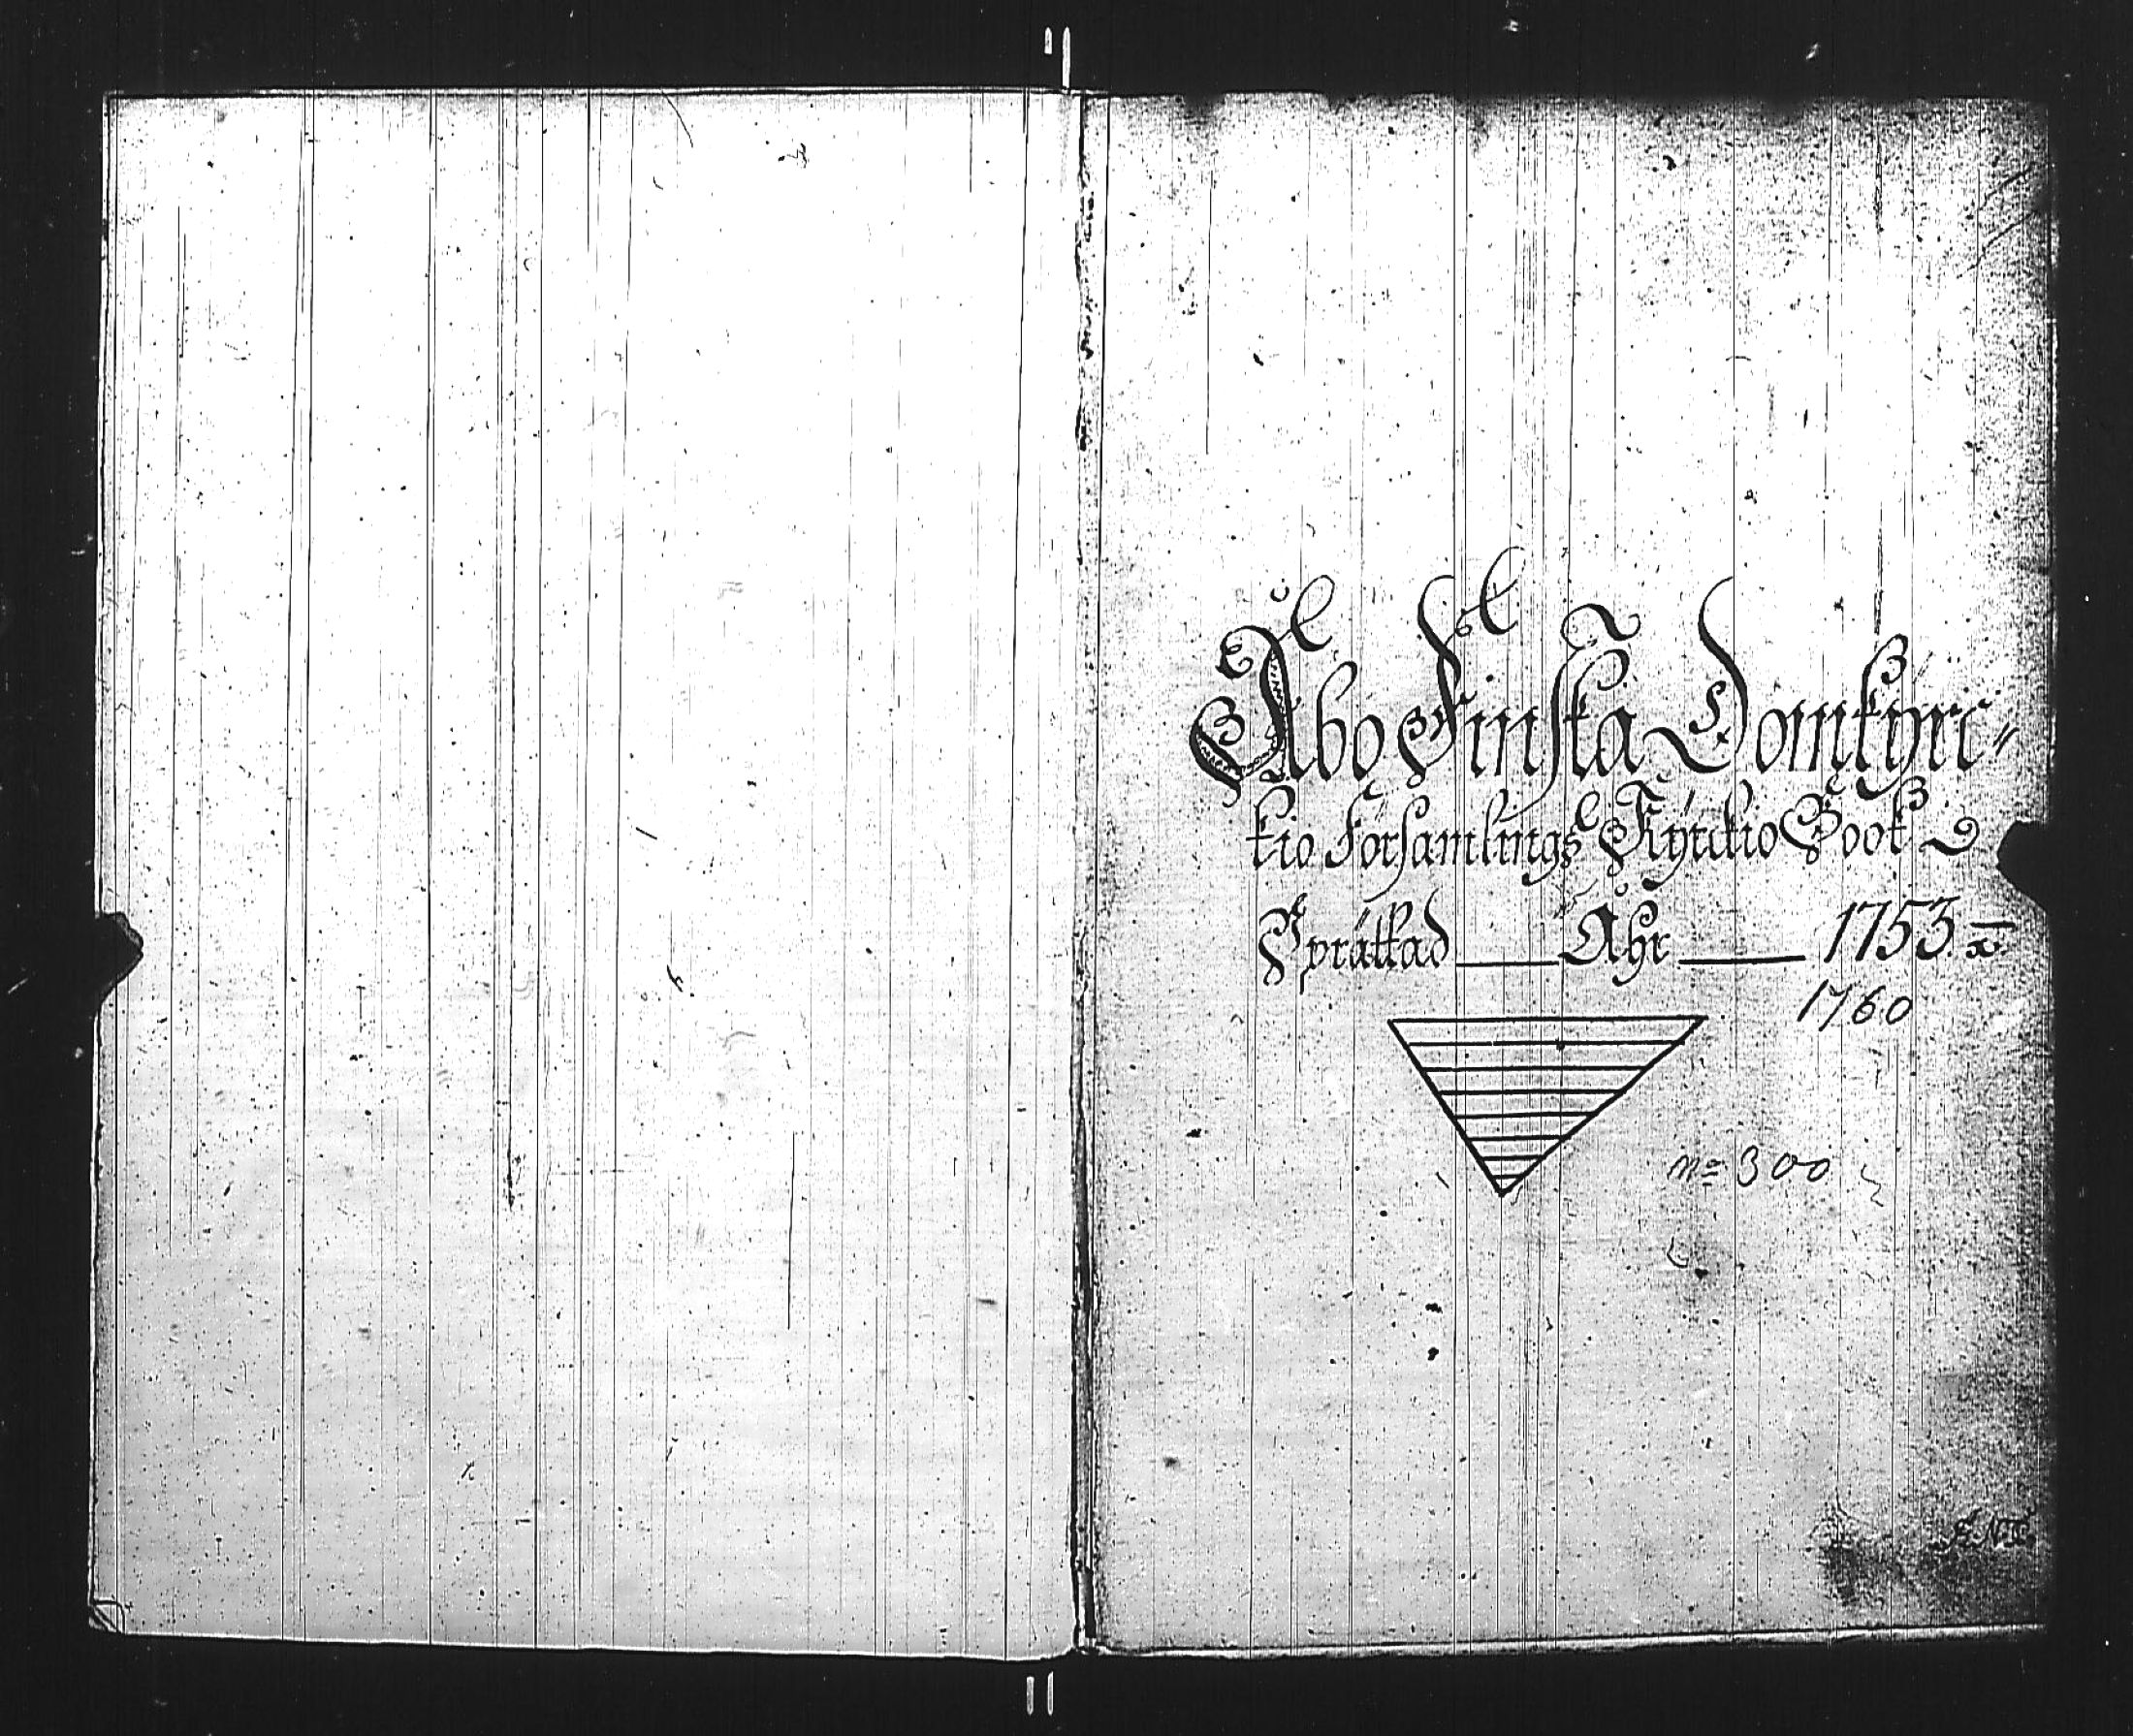 Åbo Finska Domkyrc-
kio Församlings Kyrckio Book
Uprättad Åhr 1753.
1760
no 300